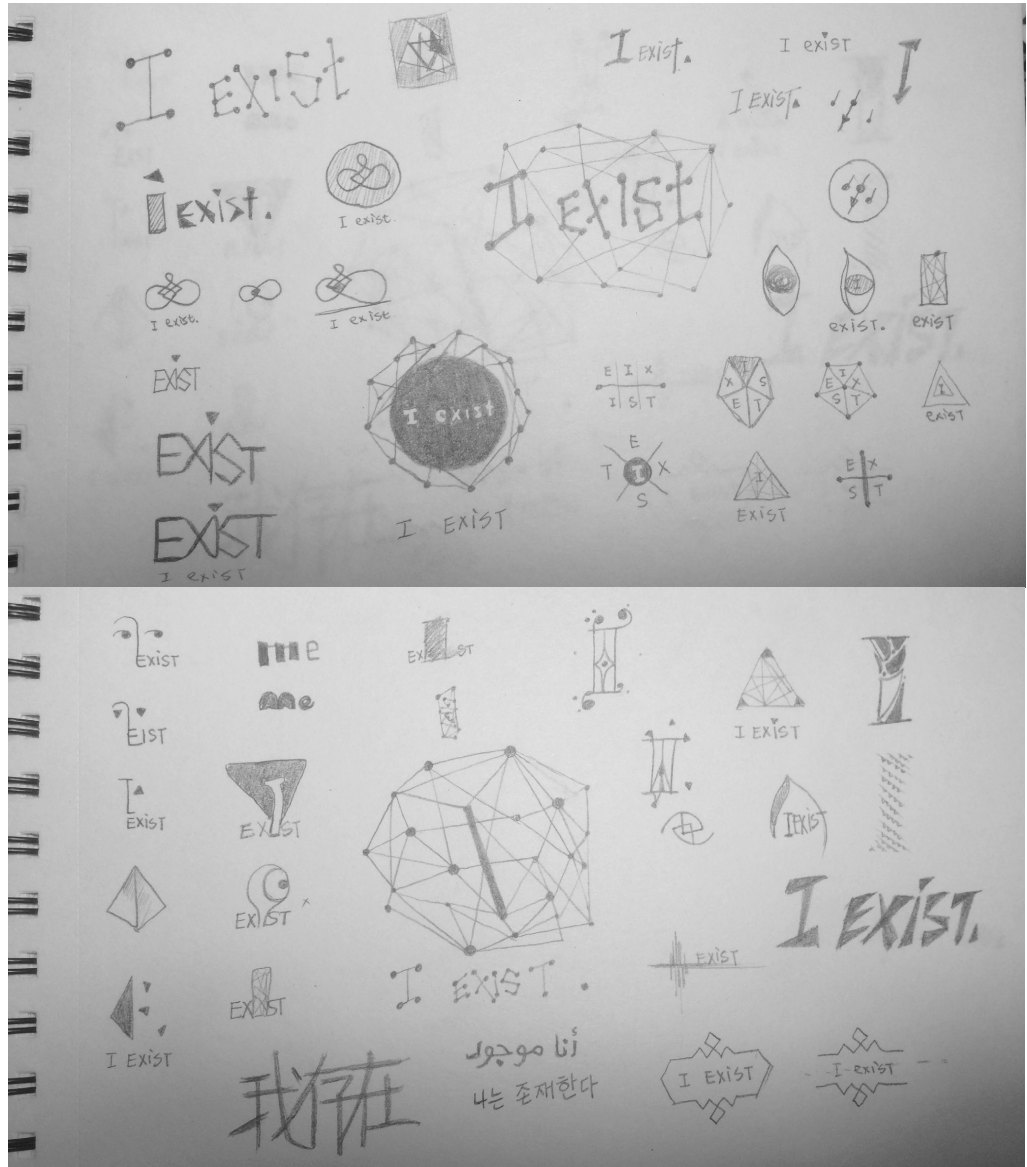 I exist
I Exist.
I exist
I
I EXIST
i exist.
I exist.
I EXIST
I exist.
I exist
I
exist.
exist
EXIST
I exist
E I X
I S T
I
X S
E T
I
E X
S T
I
exist
EXIST
E
T I X
S
I
EXIST
E X
S T
EXIST
I exist
I EXIST
EXIST
me
EX ST
I
me
I EXIST
EIST
I
EXIST
I
EX ST
I EXIST
EXIST
I EXIST.
EXIST
EXIST
I EXIST.
I EXIST
我存在
أنا موجود
나는 존재한다
I EXIST
I exist